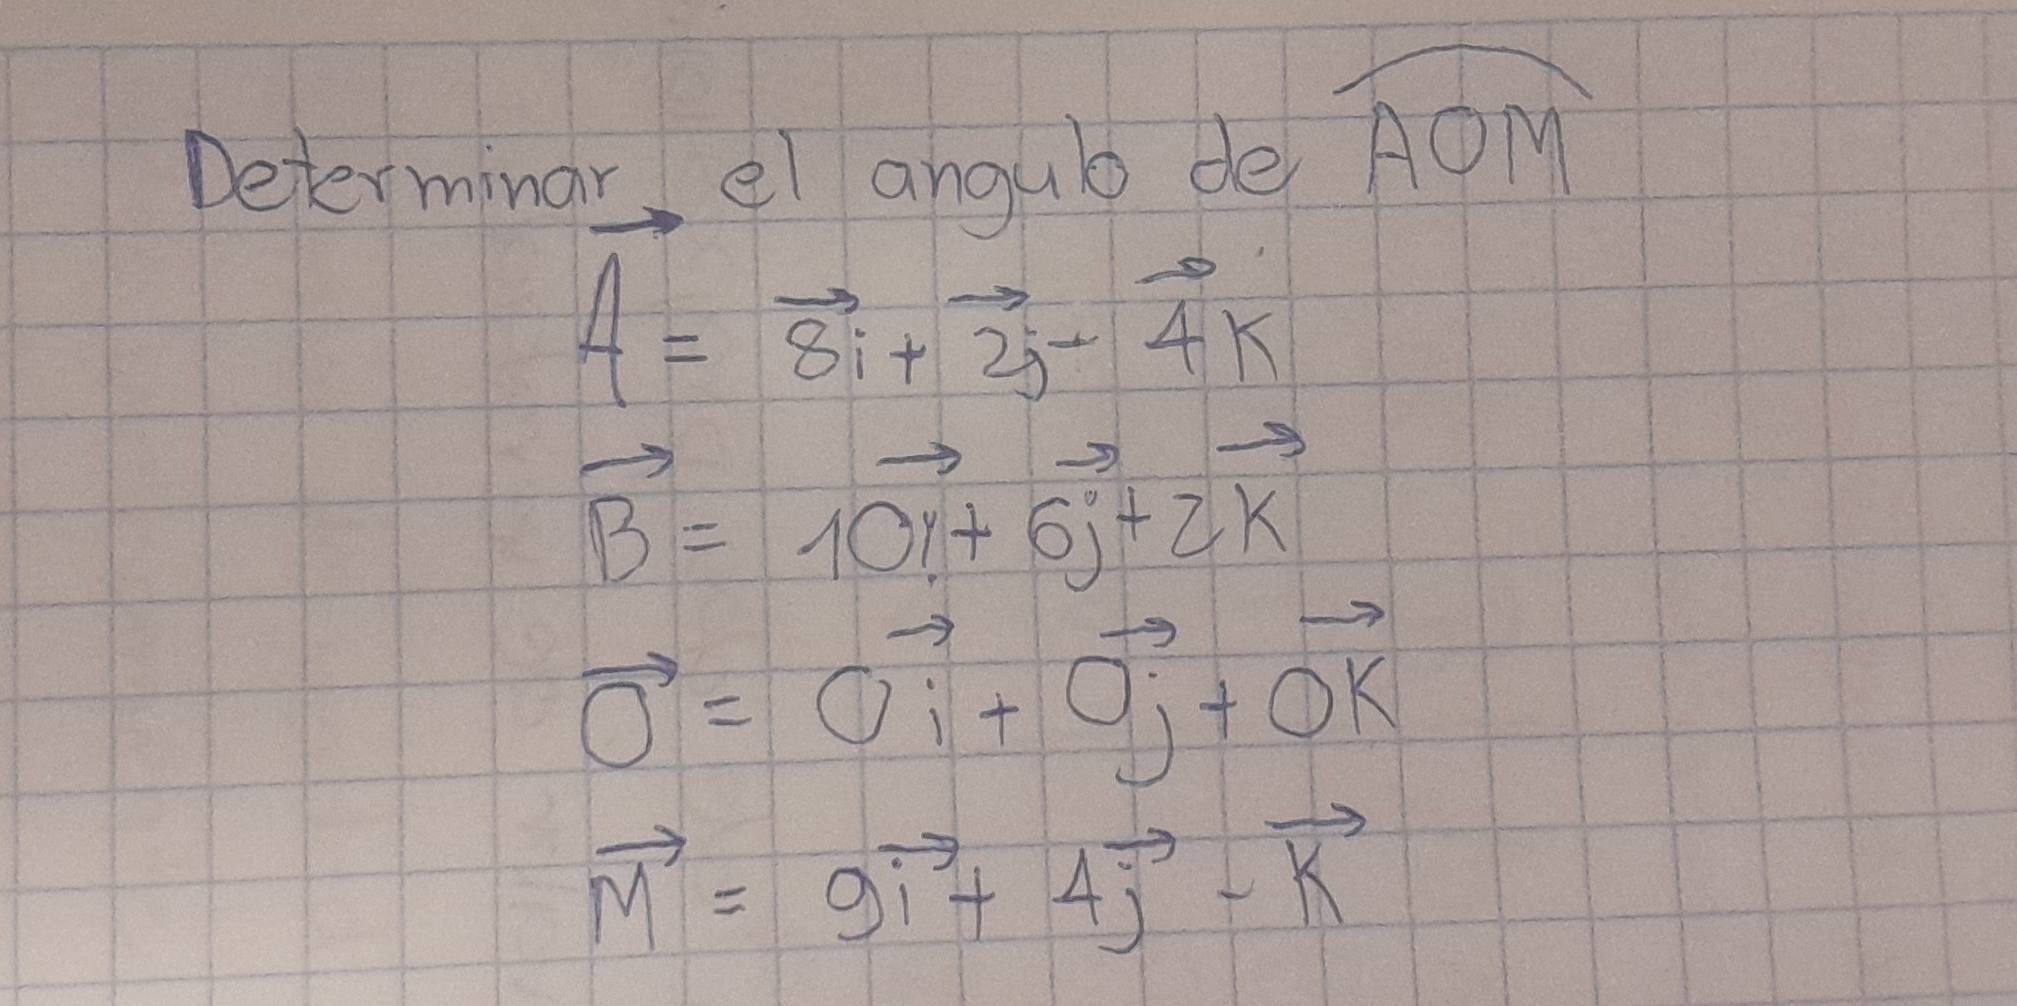 Determinar el angulo de AOM
A = 8i + 2j - 4K
B = 10i + 6j + 2K
O = 0i + 0j + 0K
M = 9i + 4j - K